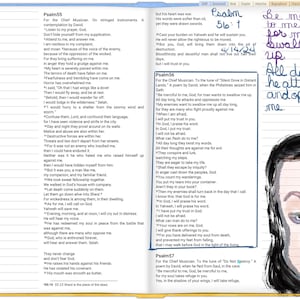 Psalm55
For the Chief Musician. On stringed instruments. A
contemplation by David.
¹ Listen to my prayer, God.
Don't hide yourself from my supplication.
² Attend to me, and answer me.
I am restless in my complaint,
and moan ³because of the voice of the enemy,
because of the oppression of the wicked.
For they bring suffering on me.
In anger they hold a grudge against me.
⁴ My heart is severely pained within me.
The terrors of death have fallen on me.
⁵ Fearfulness and trembling have come on me.
Horror has overwhelmed me.
⁶ I said, "Oh that I had wings like a dove!
Then I would fly away, and be at rest.
⁷ Behold, then I would wander far off.
I would lodge in the wilderness." Selah.
⁸ "I would hurry to a shelter from the stormy wind and
storm."
⁹ Confuse them, Lord, and confound their language,
for I have seen violence and strife in the city.
¹⁰ Day and night they prowl around on its walls.
Malice and abuse are also within her.
¹¹ Destructive forces are within her.
Threats and lies don't depart from her streets.
¹² For it was not an enemy who insulted me,
then I could have endured it.
Neither was it he who hated me who raised himself up
against me,
then I would have hidden myself from him.
¹³ But it was you, a man like me,
my companion, and my familiar friend.
¹⁴ We took sweet fellowship together.
We walked in God's house with company.
¹⁵ Let death come suddenly on them.
Let them go down alive into Sheol.
For wickedness is among them, in their dwelling.
¹⁶ As for me, I will call on God.
Yahweh will save me.
¹⁷ Evening, morning, and at noon, I will cry out in distress.
He will hear my voice.
¹⁸ He has redeemed my soul in peace from the battle that
was against me,
although there are many who oppose me.
¹⁹ God, who is enthroned forever,
will hear and answer them. Selah.
They never change
and don't fear God.
²⁰ He raises his hands against his friends.
He has violated his covenant.
²¹ His mouth was smooth as butter,
but his heart was war.
His words were softer than oil,
yet they were drawn swords.
²² Cast your burden on Yahweh and he will sustain you.
He will never allow the righteous to be moved.
²³ But you, God, will bring them down into the pit of
destruction.
Bloodthirsty and deceitful men shall not live out half their
days,
but I will trust in you.
Psalm56
For the Chief Musician. To the tune of "Silent Dove in Distant
Lands." A poem by David, when the Philistines seized him in
Gath.
¹ Be merciful to me, God, for man wants to swallow me up.
All day long, he attacks and oppresses me.
² My enemies want to swallow me up all day long,
for they are many who fight proudly against me.
³ When I am afraid,
I will put my trust in you.
⁴ In God, I praise his word.
In God, I put my trust.
I will not be afraid.
What can flesh do to me?
⁵ All day long they twist my words.
All their thoughts are against me for evil.
⁶ They conspire and lurk,
watching my steps.
They are eager to take my life.
⁷ Shall they escape by iniquity?
In anger cast down the peoples, God.
⁸ You count my wanderings.
You put my tears into your container.
Aren't they in your book?
⁹ Then my enemies shall turn back in the day that I call.
I know this: that God is for me.
¹⁰ In God, I will praise his word.
In Yahweh, I will praise his word.
¹¹ I have put my trust in God.
I will not be afraid.
What can man do to me?
¹² Your vows are on me, God.
I will give thank offerings to you.
¹³ For you have delivered my soul from death,
and prevented my feet from falling,
that I may walk before God in the light of the living.
Psalm57
For the Chief Musician. To the tune of "Do Not Destroy." A
poem by David, when he fled from Saul, in the cave.
¹ Be merciful to me, God, be merciful to me,
for my soul takes refuge in you.
Yes, in the shadow of your wings, I will take refuge,
Psalm
56
me
for
swallow
up
All
he
me